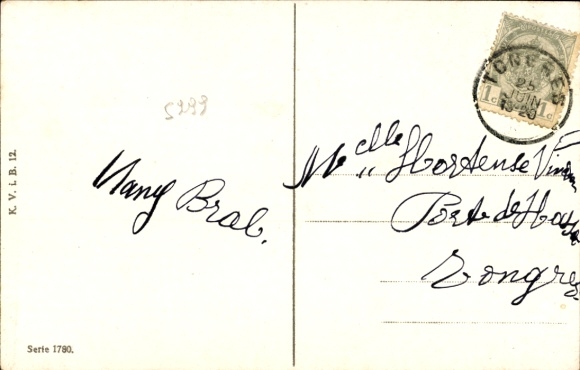 5299
K. V. i. B. 12.
Nany Brab.
Serie 1780.
TONGRES
25
JUIN
1. 1.
Melle Hortense
Porte de
Tongres